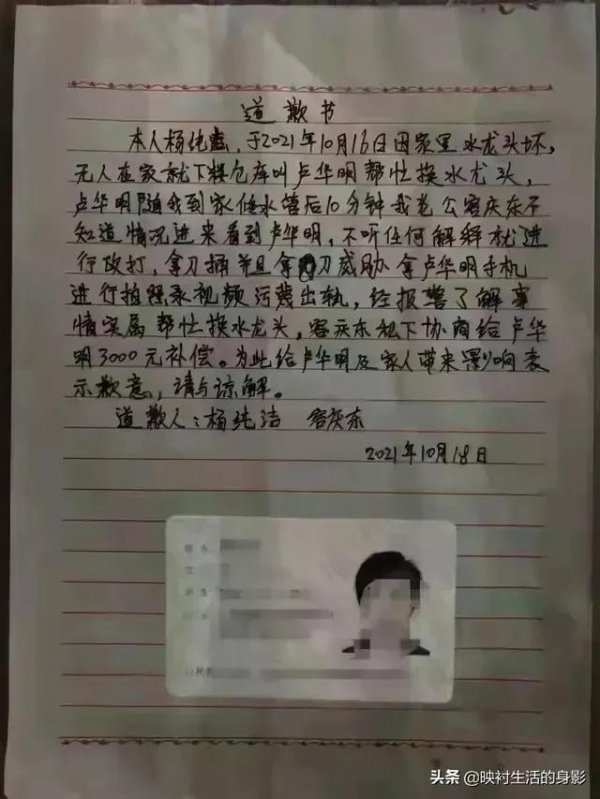 道歉书
本人杨纯洁，于2021年10月16日因家里水龙头坏，
无人在家就下楼仓库叫卢华明帮忙换水龙头，
卢华明随我到家修水管后10分钟我老公容庆东不
知道情况进来看到卢华明，不听任何解释就进
行攻打，拿刀捅并且拿刀威胁拿卢华明手机
进行拍照录视频污蔑出轨，经报警了解事
情实属帮忙换水龙头，容庆东私下协商给卢华
明3000元补偿。为此给卢华明及家人带来影响表
示歉意，请与谅解。
道歉人：杨纯洁 容庆东
2021年10月18日
头条 @映衬生活的身影